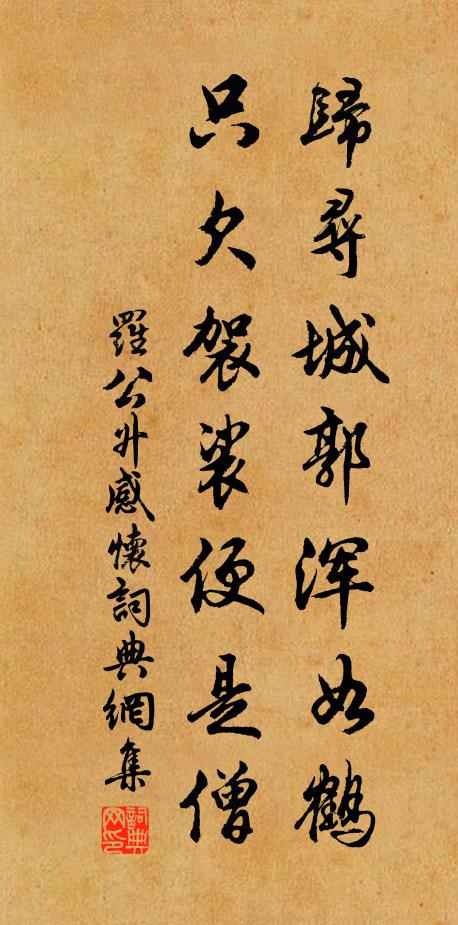 歸尋城郭浑如鶴
只欠袈裟便是僧
羅公升感懷詞典網集
詞典网印